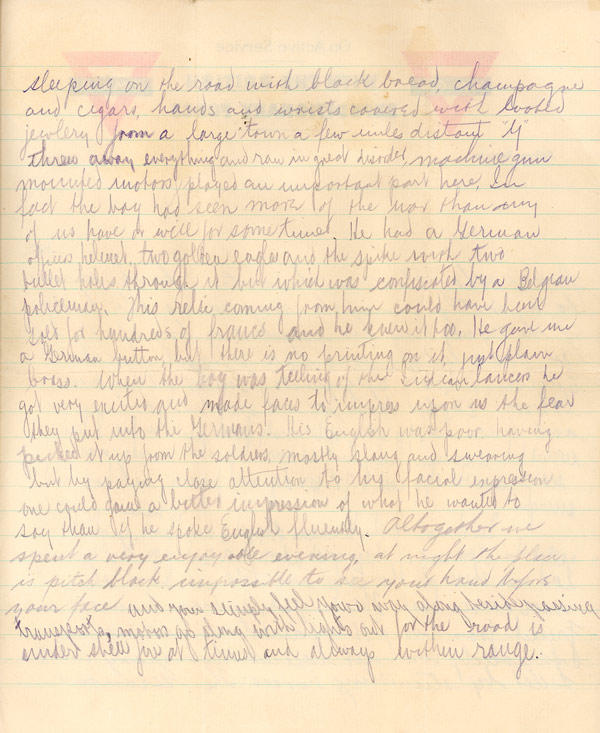 sleeping on the road with black bread, champagne
and cigars, hands and wrists covered with looted
jewlery from a large town a few miles distant "Y"
threw away everything and ran in great disorder, machine gun
mounted motors played an important part here. In
fact the boy had seen more of the war than any
of us have or will for some time. He had a German
officers helmet, two golden eagles and the spike with two
bullet holes through it but which was confiscated by a Belgian
policeman. This relic coming from him could have been
sold for hundreds of francs and he knew it too. He gave me
a German button but there is no printing on it, just plain
brass. When the boy was telling of the Indian lancers he
got very excited and made faces to impress upon us the fear
they put into the Germans. His English was poor having
picked it up from the soldiers, mostly slang and swearing
but by paying close attention to his facial expression
one could gain a better impression of what he wanted to
say than if he spoke English fluently. Altogether we
spent a very enjoyable evening, at night the place
is pitch black impossible to see your hand before
your face and you simply feel your way along passing
transports, motors go along with lights out for the road is
under shell fire at times and always within range.
On Active Service